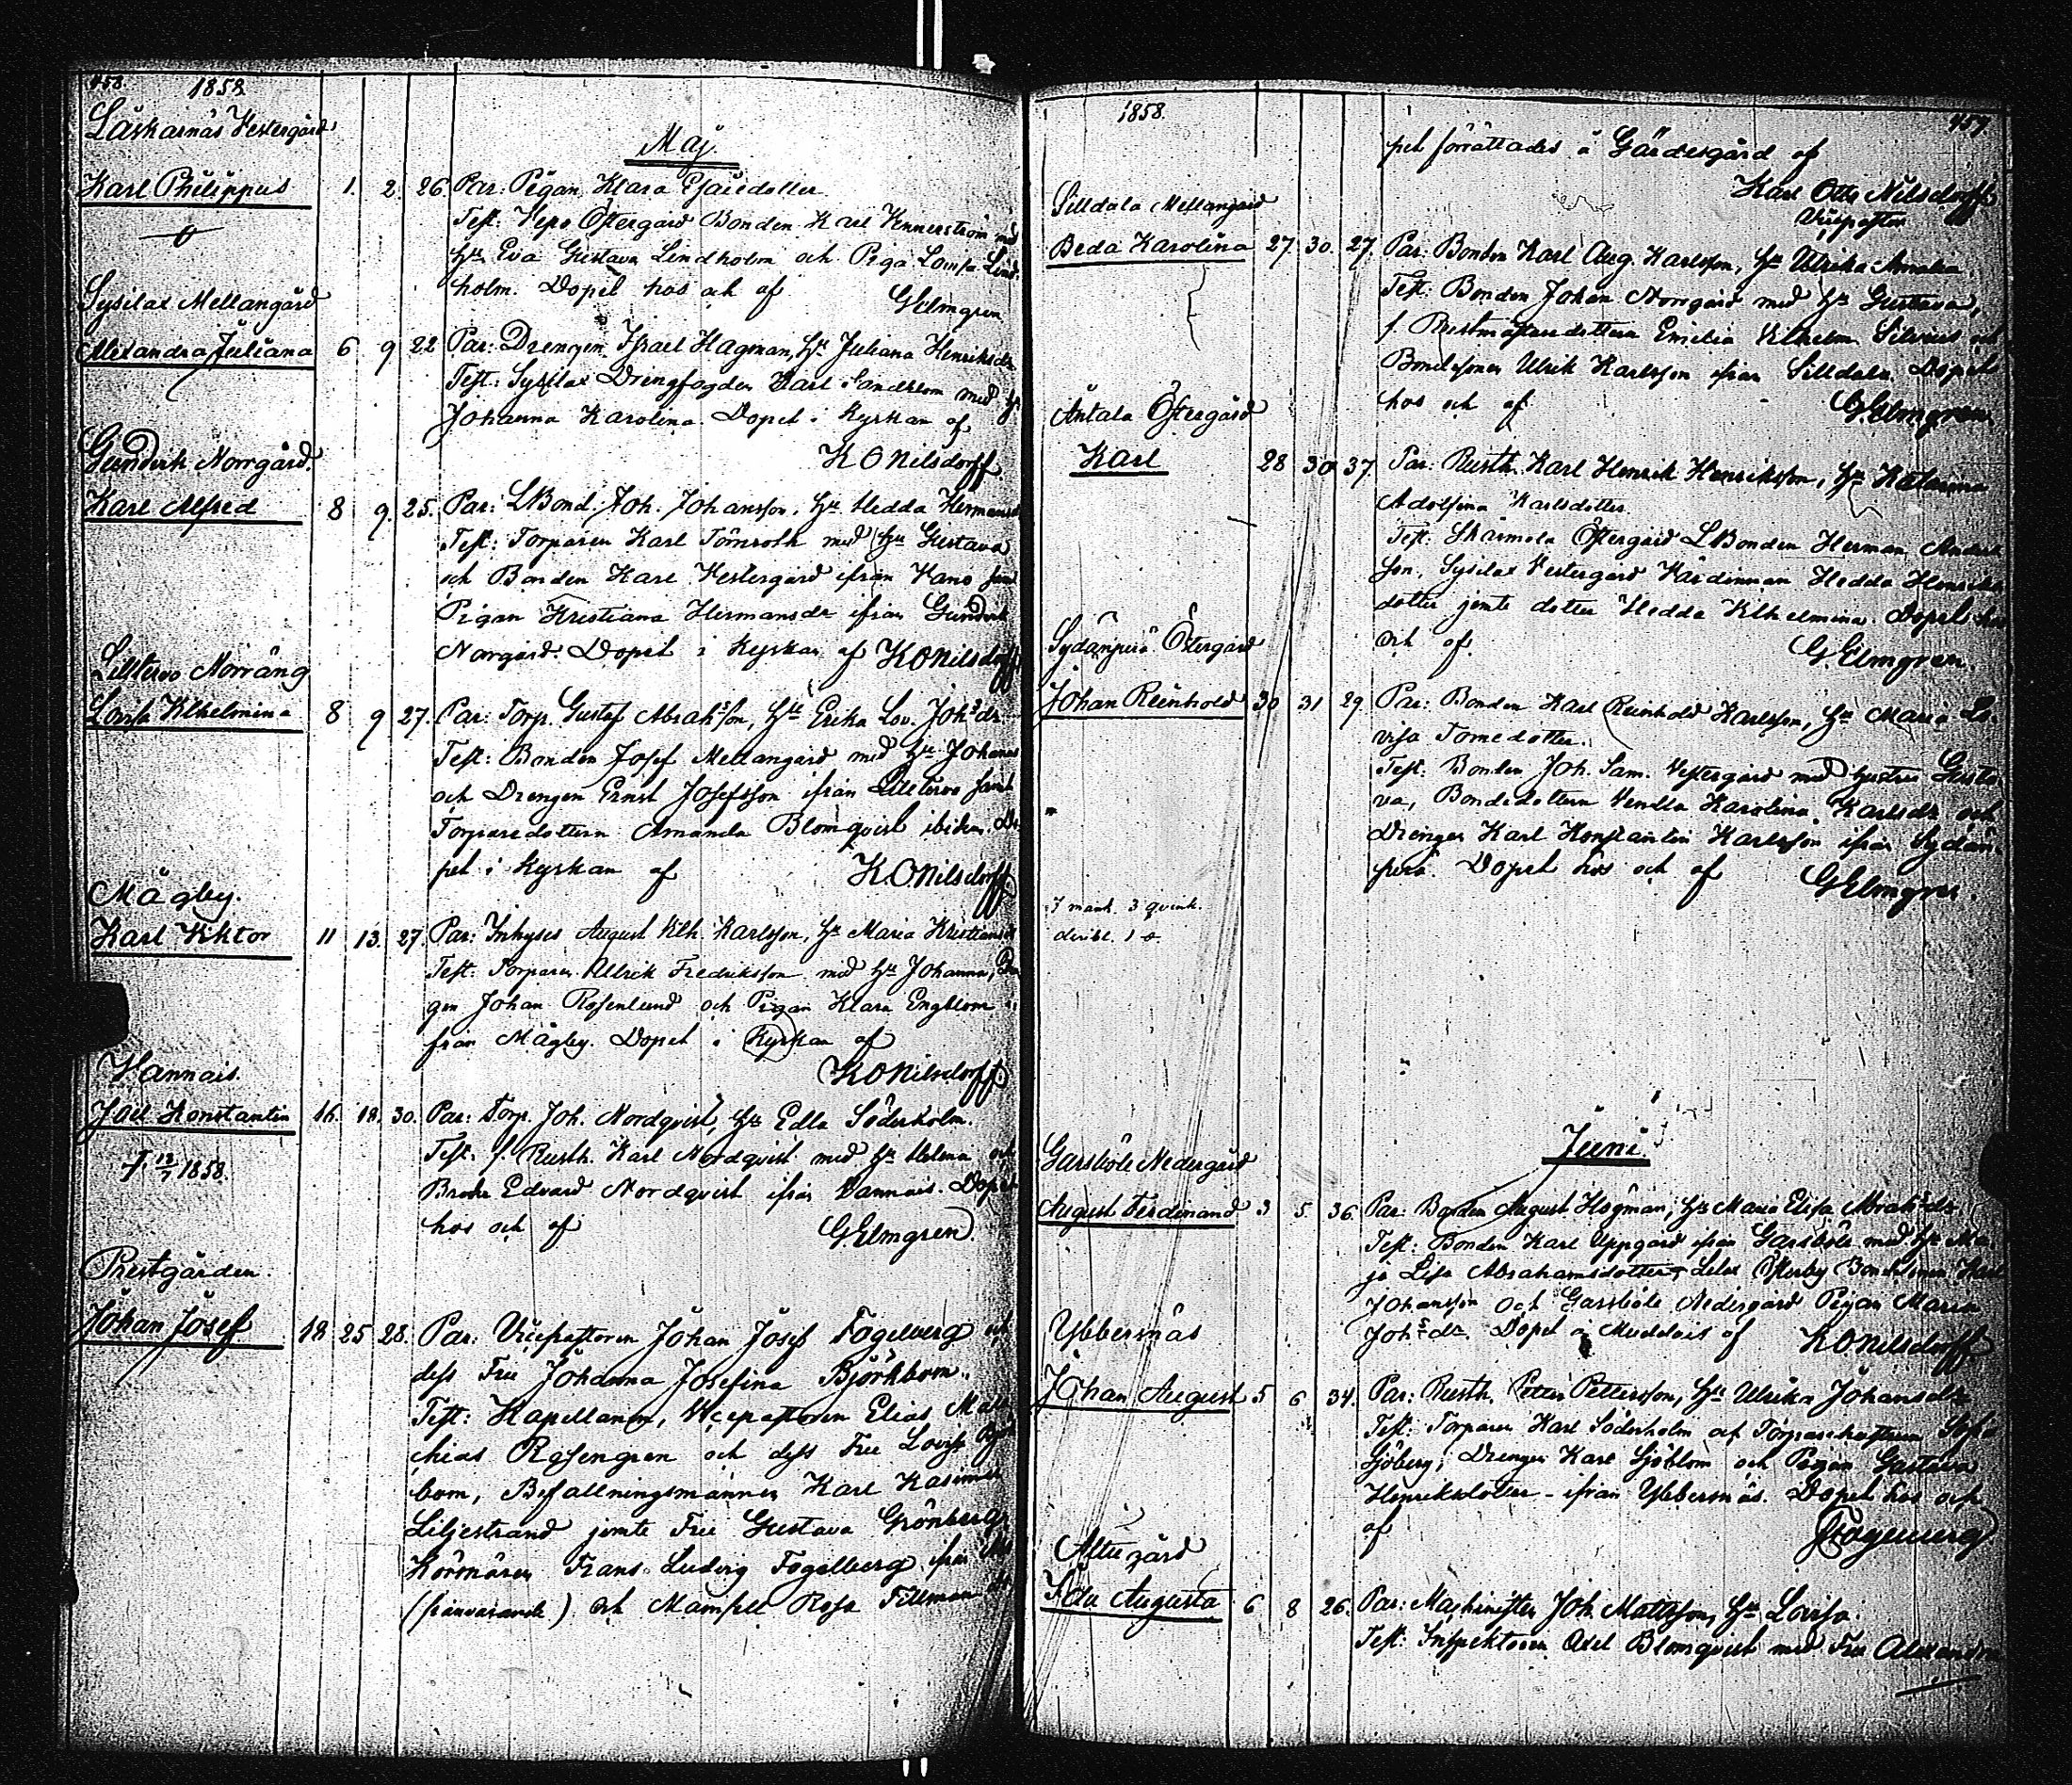 458. 1858
Laskarnäs Vestergård
Maj.
Karl Philippus 1. 2. 26. Par: Pigan Klara Esaiedotter
Test: Vepo Östergård Bonden Karl Vennerström med
hu Eva Gustava Lindholm och Piga Lovisa Lind-
holm. Dopet hos och af GElmgren
Sysilax Mellangård
Alexandra Juliana 6 9 22 Par: Drengen Israel Hagman, hu Juliana Henriksdr
Test: Sysilax Drengfogden Karl Sandblom med hu
Johanna Karolina. Dopet i Kyrkan af
KONilsdorff.
Gundvik Norrgård.
Karl Alfred 8 9. 25. Par: LBond. Joh. Johansson, hu Hedda Hermansd
Test: Torparen Karl Törnroth med hu Gustava
och Bonden Karl Vestergård ifrån Vano samt
Pigan Kristiana Hermansdr ifrån Gundvik
Norrgård. Dopet i Kyrkan af KONilsdorff
Lilltervo Norräng
Lovisa Vilhelmina 8 9 27. Par: Torp. Gustaf Abrahsson, hu Erika Lov. Johsdr
Test: Bonden Josef Mellangård med hu Johanna
och Drengen Ernst Josefsson ifrån Lilltervo samt
Torparedottern Amanda Blomqvist ibidem. Do-
pet i Kyrkan af K.O.Nilsdorff.
Mägby.
Karl Viktor 11 13. 27. Par: Inhyses August Vilh. Karlsson, hu Maria Kristiansd
Test: Torparen Ulrik Fredriksson med hu Johanna, Dren
gen Johan Rosenlund och Pigan Klara Engblom i-
från Mägby. Dopet i Kyrkan af
KONilsdorff.
Vannais.
Joel Konstantin 16. 18. 30. Par: Torp. Joh. Nordqvist, hu Edla Söderholm.
Test: f. Rusth. Karl Nordqvist med hu Helena och
† 1858. Brodr Edvard Nordqvist ifrån Vannais. Dopet
hos och af G.Elmgren.
Prestgården.
Johan Josef 18 25 28. Par: Vicepastoren Johan Josef Fogelberg och
dess Fru Johanna Josefina Björkbom.
Test: Kapellanen, Vicepastoren Elias Mala-
chias Rosengren och dess Fru Lovisa Björk
bom, Befallningsmannen Karl Kasimir
Liljestrand jemte Fru Gustava Grönberg,
Körsnären Frans Ludvig Fogelberg ifrån Åbo
(frånvarande) och Mamsell Rosa Tillman
1858. 459
pet förrättades å Gärdesgård af
Karl Otto Nilsdorff
Vicepastor
Silldala Mellangård
Beda Karolina 27. 30. 27. Par: Bonden Karl Aug. Karlsson, hu Ulrika Amalia.
Test: Bonden Johan Norrgård med hu Gustava,
f. Emilia Vilhelm. Silvius och
Bondesonen Ulrik Karlsson ifrån Silldala. Dopet
hos och af G.Elmgren.
Antala Östergård
Karl 28 30 37. Par: Rusth. Karl Henrik Henriksson, hu Katarina
Adolfina Karlsdotter.
Test: Skärmola Östergård LBonden Herman Anders
son, Sysilax Vestergård Värdinnan Hedda Henriks
dotter jemte dotter Hedda Vilhelmina. Dopet hos
och af. G.Elmgren.
Sydänperä Östergård
Johan Reinhold 30 31 29. Par: Bonden Karl Reinhold Karlsson, hu Maria Lo-
visa Tomedotter.
Test: Bonden Joh. Sam. Vestergård med hustru Gusta-
va, Bondedottern Vendla Karolina Karlsdr och
Drengen Karl Konstantin Karlsson ifrån Sydän-
perä. Dopet hos och af GElmgren.
7 mank. 3 qvink.
deribl. 1 o.ä.
Juni.
Garsböle Nedergård
August Ferdinand 3 5 36. Par: Bonden August Högman, hu Maria Elisa Abrahsdr
Test: Bonden Karl Uppgård ifrån Garsböle med hu Ma-
ja Lisa Abrahamsdotter, Lilax Österby Bondesonen Karl
Johansson och Garsböle Nedergård Pigan Maria
Johsdr. Dopet å Muddais af KONilsdorff
Ybbersnäs
Johan August 5 6 34. Par: Rusth. Petter Pettersson, hu Ulrika Johansdr
Test: Torparen Karl Söderholm och Torparehustrun Sofia
Sjöberg, Drengen Karl Sjöblom och Pigan Gustava
Henriksdotter ifrån Ybbersnäs. Dopet hos och
af JJFogelberg
Attugård
Ida Augusta 6 8 26. Par: Maskinisten Joh. Mattsson, hu Lovisa.
Test: Inspektoren Axel Blomqvist med Fru Alexandra